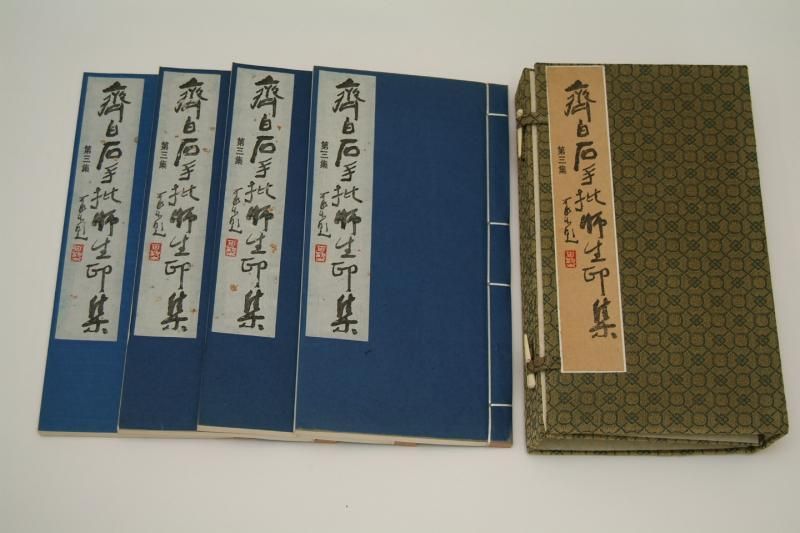 齊白石手批師生印集
第三集
齊白石手批師生印集
第三集
齊白石手批師生印集
第三集
齊白石手批師生印集
第三集
齊白石手批師生印集
第三集